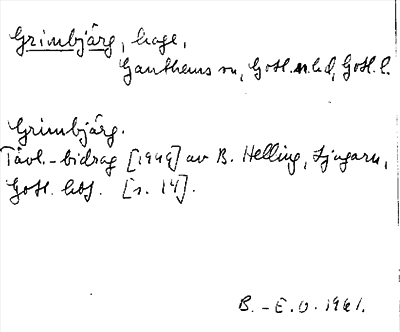 Grimbjärg, hage,
Ganthems sn, Gotl. n. hd, Gotl. l.
Grimbjärg.
Tävl.-bidrag [1949] av B. Helling, Ljugarn,
Gotl. [s. 14].
B.-E.O. 1961.